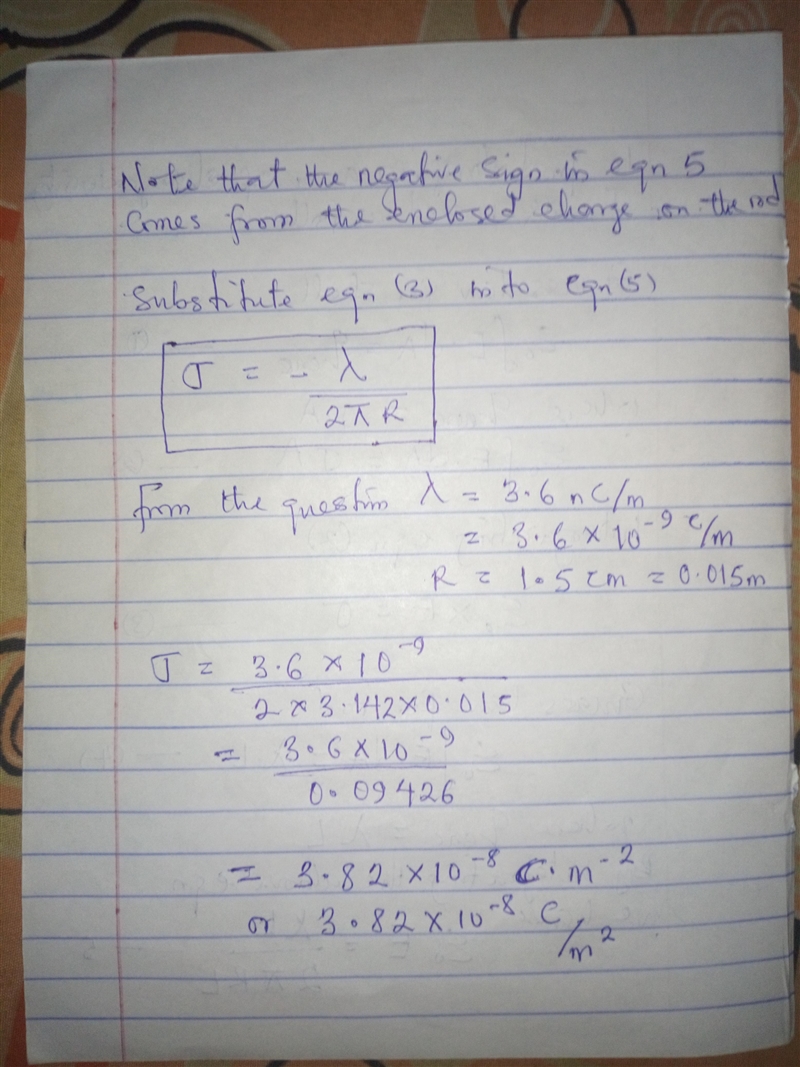 Note that the negative sign in eqn 5
comes from the enclosed charge on the rod
Substitute eqn (3) in to eqn (5)
σ = - λ
2π R
from the question λ = 3.6 n C/m
= 3.6 × 10⁻⁹ C/m
R = 1.5 cm = 0.015m
σ = 3.6 × 10⁻⁹
2 × 3.142 × 0.015
= 3.6 × 10⁻⁹
0.09426
= 3.82 × 10⁻⁸ C·m⁻²
or 3.82 × 10⁻⁸ C/m²